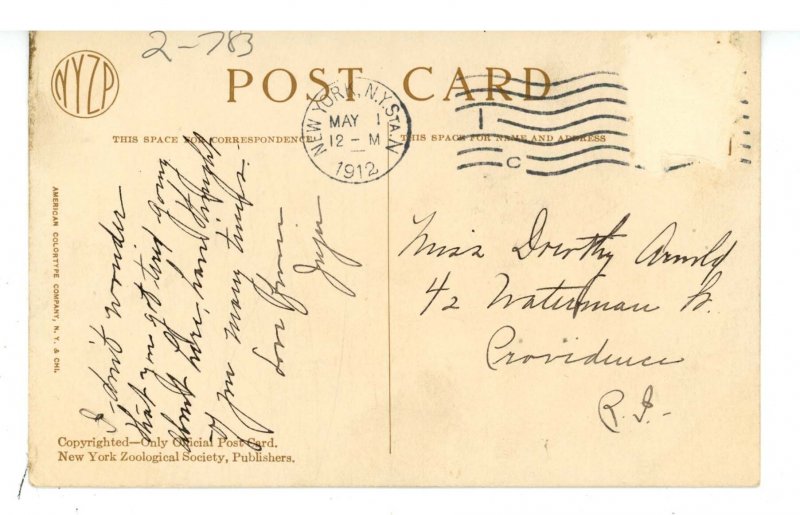 2-783
NYZP
POST CARD
NEW YORK, N.Y. STA. N
MAY 1
12-M
1912
1
C
THIS SPACE FOR CORRESPONDENCE
THIS SPACE FOR NAME AND ADDRESS
AMERICAN COLORTYPE COMPANY, N. Y. & CHI.
I don't wonder
that you got tired going
about here, have thought
of you many times.
Love from
Miss Dorothy Arnold
42 Waterman St.
Providence
R.I.-
Copyrighted—Only Official Post Card.
New York Zoological Society, Publishers.